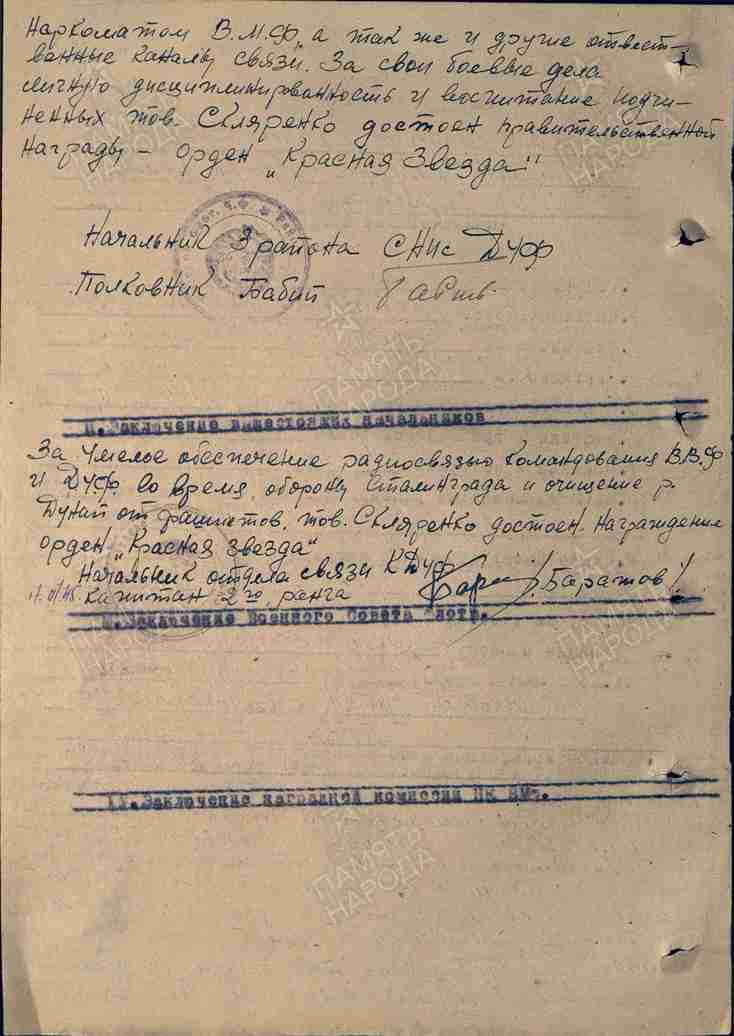 Наркоматом В.М.Ф., а так же и другие ответст-
венные каналы связи. За свои боевые дела
личную дисциплинированность и воспитание подчи-
ненных тов. Скляренко достоен правительственной
награды – орден „Красная Звезда"
Начальник 3 района СНиС ДУФ
Полковник Бабий
II. Заключение вышестоящих начальников
За умелое обеспечение радиосвязью командования В.В.Ф
и ДУФ во время обороны Сталинграда и очищение р.
Дунай от фашистов, тов. Скляренко достоен награждение
орден „Красная звезда"
Начальник отдела связи КДУФ
капитан 2го ранга /Баратов/
III. Заключение Военного Совета Флота.
IV. Заключение наградной комиссии НК ВМФ.
ПАМЯТЬ
НАРОДА